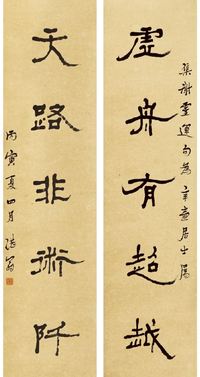 集謝靈運句為辛壺居士屬
虛舟有超越
天路非術阡
丙寅夏四月